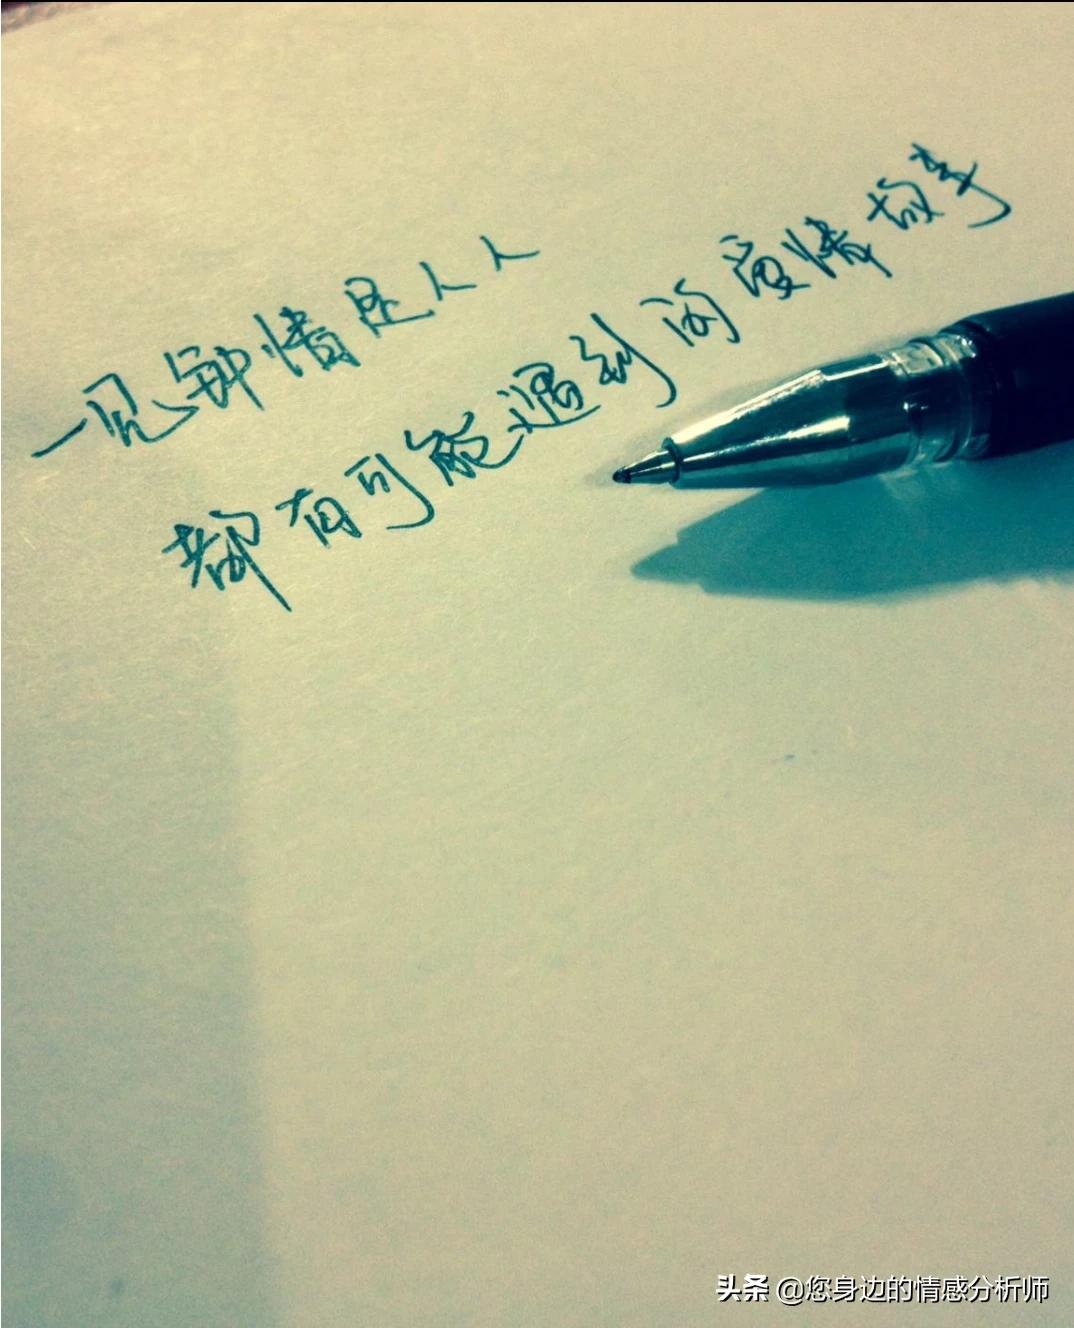 一见钟情是人人
都有可能遇到的爱情故事
头条 @您身边的情感分析师